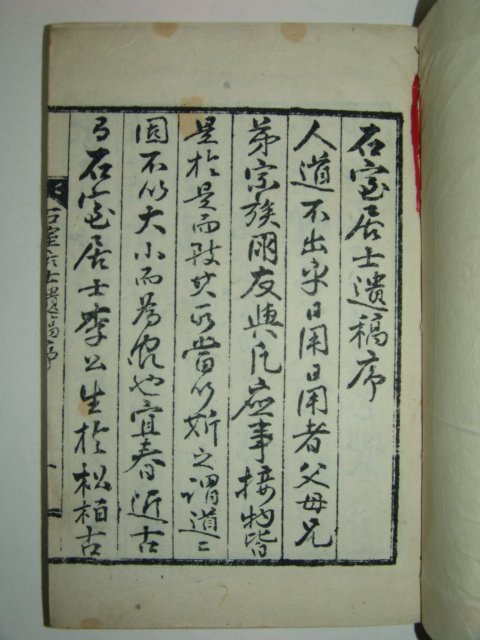 石室居士遺稿序
人道不出乎日用日用者父母兄
弟宗族朋友與凡應事接物皆
是於是而致其所當行斯之謂道二
固不以大小而為也宜春近古
有石室居士李公生於松栢古
石室居士遺稿序